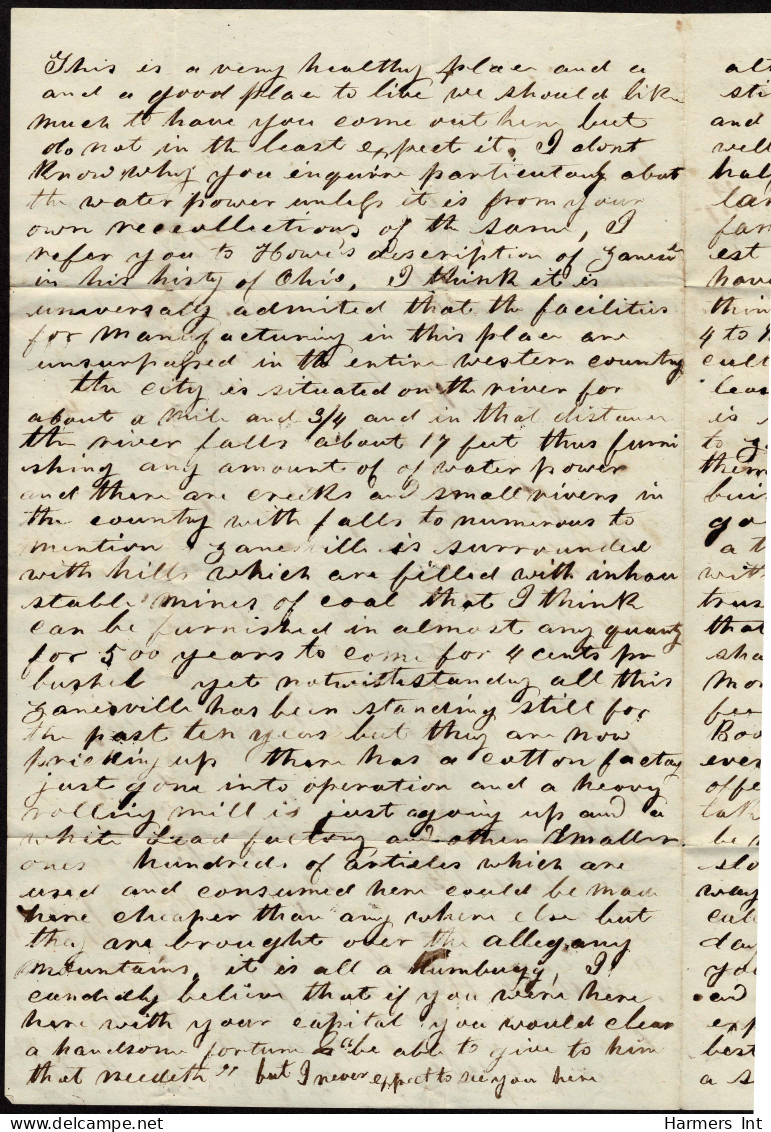 This is a very healthy place and a
and a good place to live we should like
much to have you come out here but
do not in the least expect it, I dont
know why you enquire particularly about
the water power unless it is from your
own reccollections of the same, I
refer you to Howe's description of Zanesv
in his histy of Ohio, I think it is
universaly admitted that the facilities
for manufacturing in this place are
unsurpassed in the entire western country
the city is situated on the river for
about a mile and 3/4 and in that distance
the river falls about 17 feet thus furni
shing any amount of of water power
and there are creeks and small rivers in
the country with falls to numerous to
mention Zanesville is surrounded
with hills which are filled with inhau
stable mines of coal that I think
can be furnished in almost any quanty
for 500 years to come for 4 cents pr
bushel yet notwithstanding all this
Zanesville has been standing still for
the past ten years but they are now
pricking up there has a cotton factory
just gone into operation and a heavy
rolling mill is just agoing up and a
white Lead factory and other smaller
ones hundreds of articles which are
used and consumed here could be made
here cheaper than any where else but
they are brought over the allegany
mountains, it is all a humbugg, I
candidly believe that if you were here
here with your capital you would clear
a handsome fortune & "be able to give to him
that needeth" but I never expect to see you here
alt
sti
and
well
hal
lar
far
est
have
thin
4 to
cult
leas
is
to
them
buil
go
a t
with
trus
that
sha
mor
fee
Boo
ever
offe
tak
be
slo
way
cal
day
you
and
exp
best
a s
Harmers Int